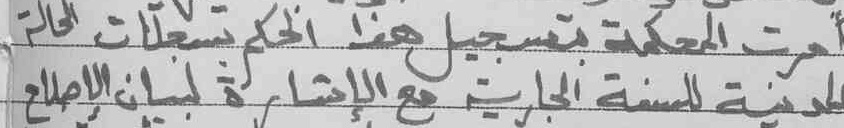 أمرت المحكمة بتسجيل هذا الحكم بسجلات الحالة
المدنية للسنة الجارية مع الإشارة لبيان الإصلاح